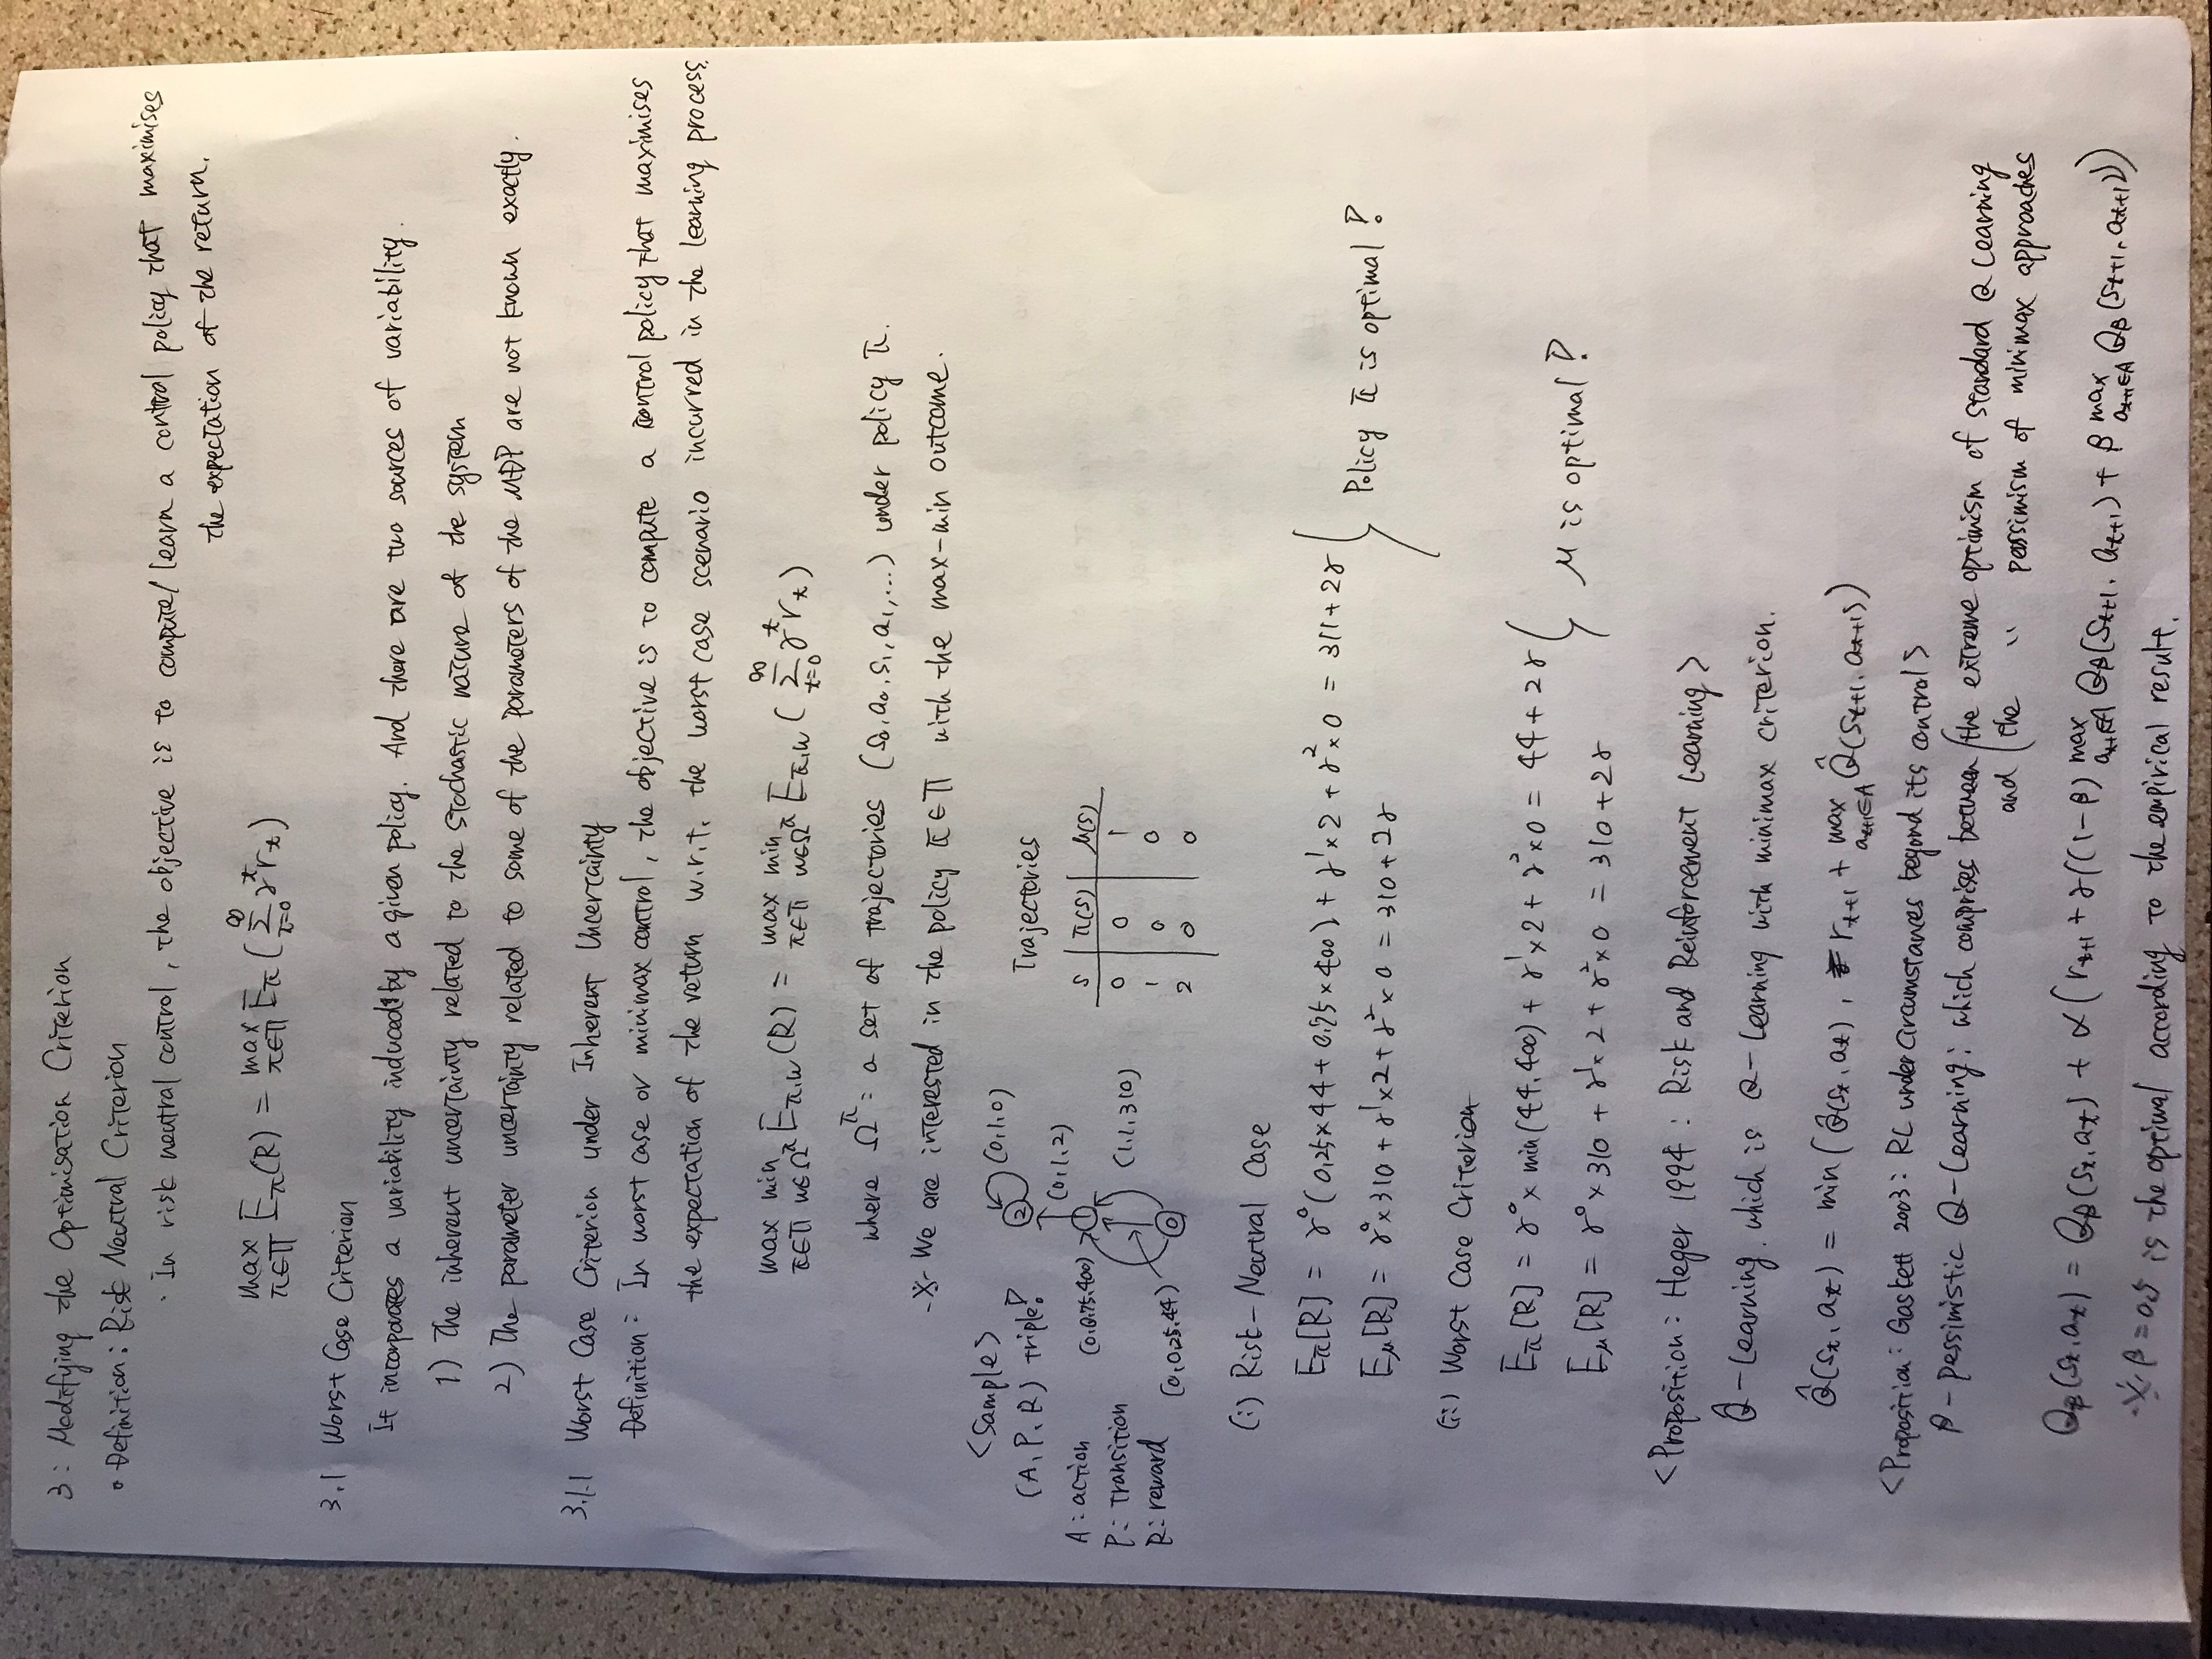 3: Modifying the Optimisation Criterion
• Definition: Risk Neutral Criterion
· In risk neutral control, the objective is to compute/learn a control policy that maximises
the expectation of the return.
max_{π∈Π} E_π(R) = max_{π∈Π} E_π(Σ_{t=0}^{∞} γ^t r_t)
3.1 Worst Case Criterion
It incorporates a variability induced by a given policy. And there are two sources of variability.
1) The inherent uncertainty related to the stochastic nature of the system
2) The parameter uncertainty related to some of the parameters of the MDP are not known exactly.
3.1.1 Worst Case Criterion under Inherent Uncertainty
Definition: In worst case or minimax control, the objective is to compute a control policy that maximises
the expectation of the return w.r.t. the worst case scenario incurred in the learning process.
max_{π∈Π} min_{w∈Ω^π} E_{π,w}(R) = max_{π∈Π} min_{w∈Ω^π} E_{π,w}(Σ_{t=0}^{∞} γ^t r_t)
where Ω^π: a set of trajectories (s_0, a_0, s_1, a_1, ...) under policy π.
※ We are interested in the policy π∈Π with the max-min outcome.
<Sample>
(A, P, R) triple!
A: action
P: transition
R: reward
2 (0,1,0)
(0,1,2)
(0,0.75,400) 1
(1,1,310)
(0,0.25,44) 0
Trajectories
s | π(s) | μ(s)
0 | 0 | 1
1 | 0 | 0
2 | 0 | 0
(i) Risk-Neutral Case
E_π[R] = γ^0(0.25×44+0.75×400)+γ^1×2+γ^2×0 = 311+2γ
E_μ[R] = γ^0×310+γ^1×2+γ^2×0 = 310+2γ
Policy π is optimal!
(ii) Worst Case Criterion
E_π[R] = γ^0×min(44,400)+γ^1×2+γ^2×0 = 44+2γ
E_μ[R] = γ^0×310+γ^1×2+γ^2×0 = 310+2γ
μ is optimal!
<Proposition: Heger 1994: Risk and Reinforcement Learning>
Q̂-Learning, which is Q-Learning with minimax criterion.
Q̂(s_t, a_t) = min(Q̂(s_t, a_t), r_{t+1} + max_{a_{t+1}∈A} Q̂(s_{t+1}, a_{t+1}))
<Proposition: Gaskett 2003: RL under circumstances beyond its control>
β-pessimistic Q-Learning: which comprises between the extreme optimism of standard Q Learning
and the " pessimism of minimax approaches
Q_β(s_t, a_t) = Q_β(s_t, a_t) + α(r_{t+1} + γ((1-β) max_{a_{t+1}∈A} Q_β(s_{t+1}, a_{t+1}) + β max_{a_{t+1}∈A} Q_β(s_{t+1}, a_{t+1})))
※ β=0.5 is the optimal according to the empirical result.